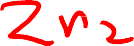 Zn₂